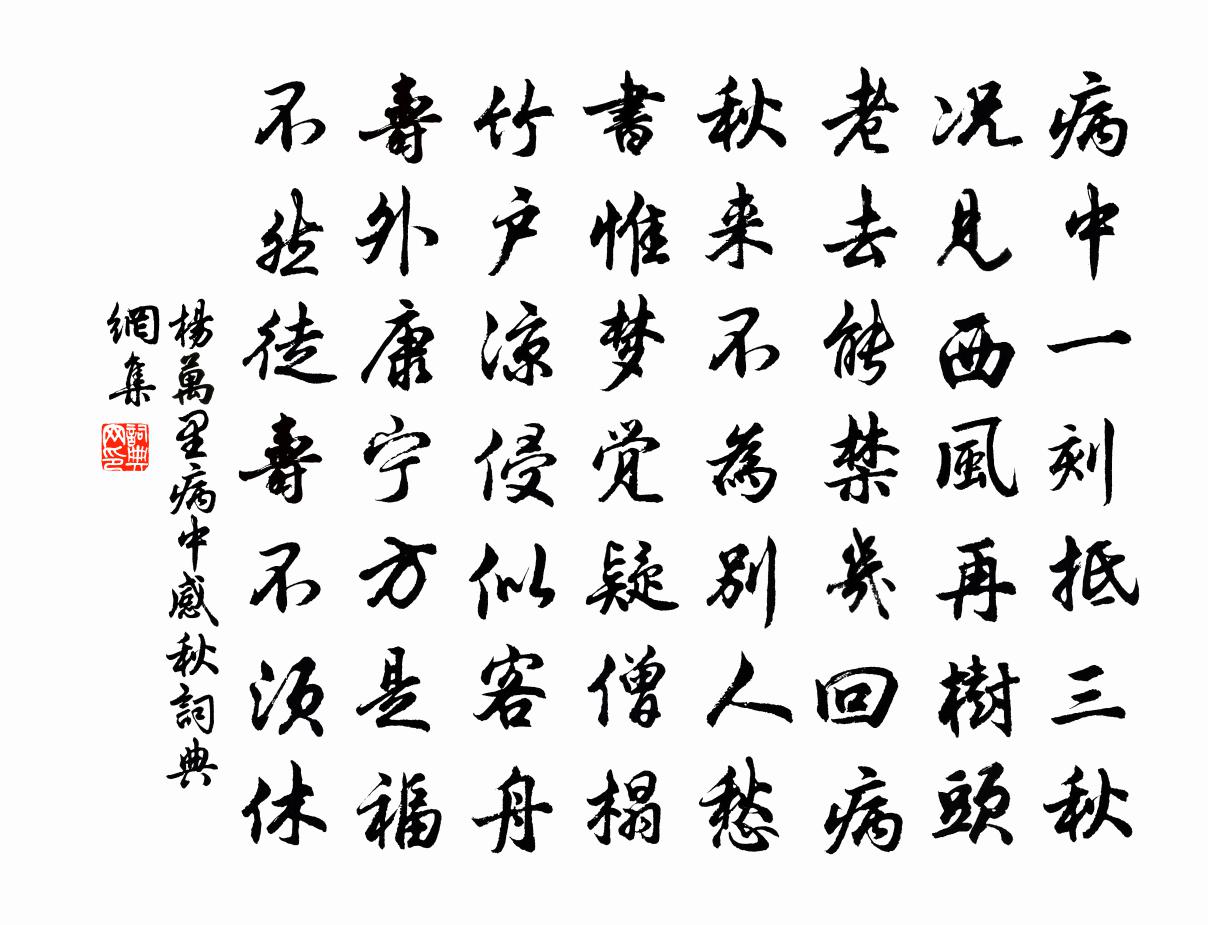 病中一刻抵三秋
况見西風再樹頭
老去能禁幾回病
秋来不為別人愁
書惟梦觉疑僧榻
竹户凉侵似客舟
壽外康宁方是福
不然徒壽不須休
楊萬里病中感秋詞典
網集
詞典
网印